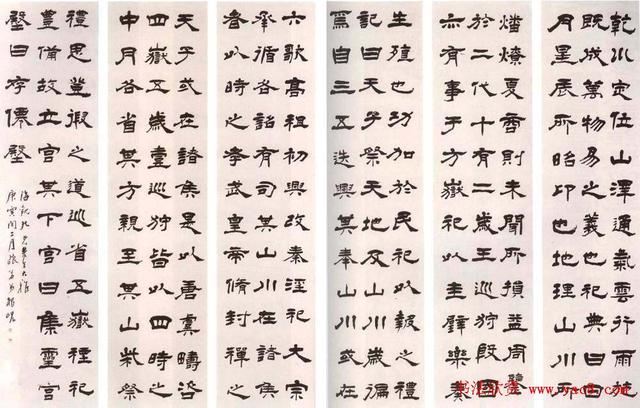 乾川定位山澤通氣雲行雨施
既成萬物易之義也祀典曰日
月星辰所昭卬也地理山川所
燔燎夏商則未聞所損益周鑒
於二代十有二歲王巡狩殷國
亦有事于方嶽祀以圭璧樂奏
生殖也功加於民祀以報之禮
記曰天子祭天地及山川歲徧
焉自三五迭興其奉山川或在
六歌高祖初興改秦淫祀大宗
承循各詔有司其山川在諸侯
者以時之孝武皇帝脩封禪之
天子或在諸侯是以唐虞疇咨
四嶽五歲壹巡狩皆以四時之
中月各省其方親至其山柴祭
禮思登假之道巡省五嶽禋祀
豐備故立宮其下宮曰集靈宮
殿曰存僊殿
庚寅閏二月